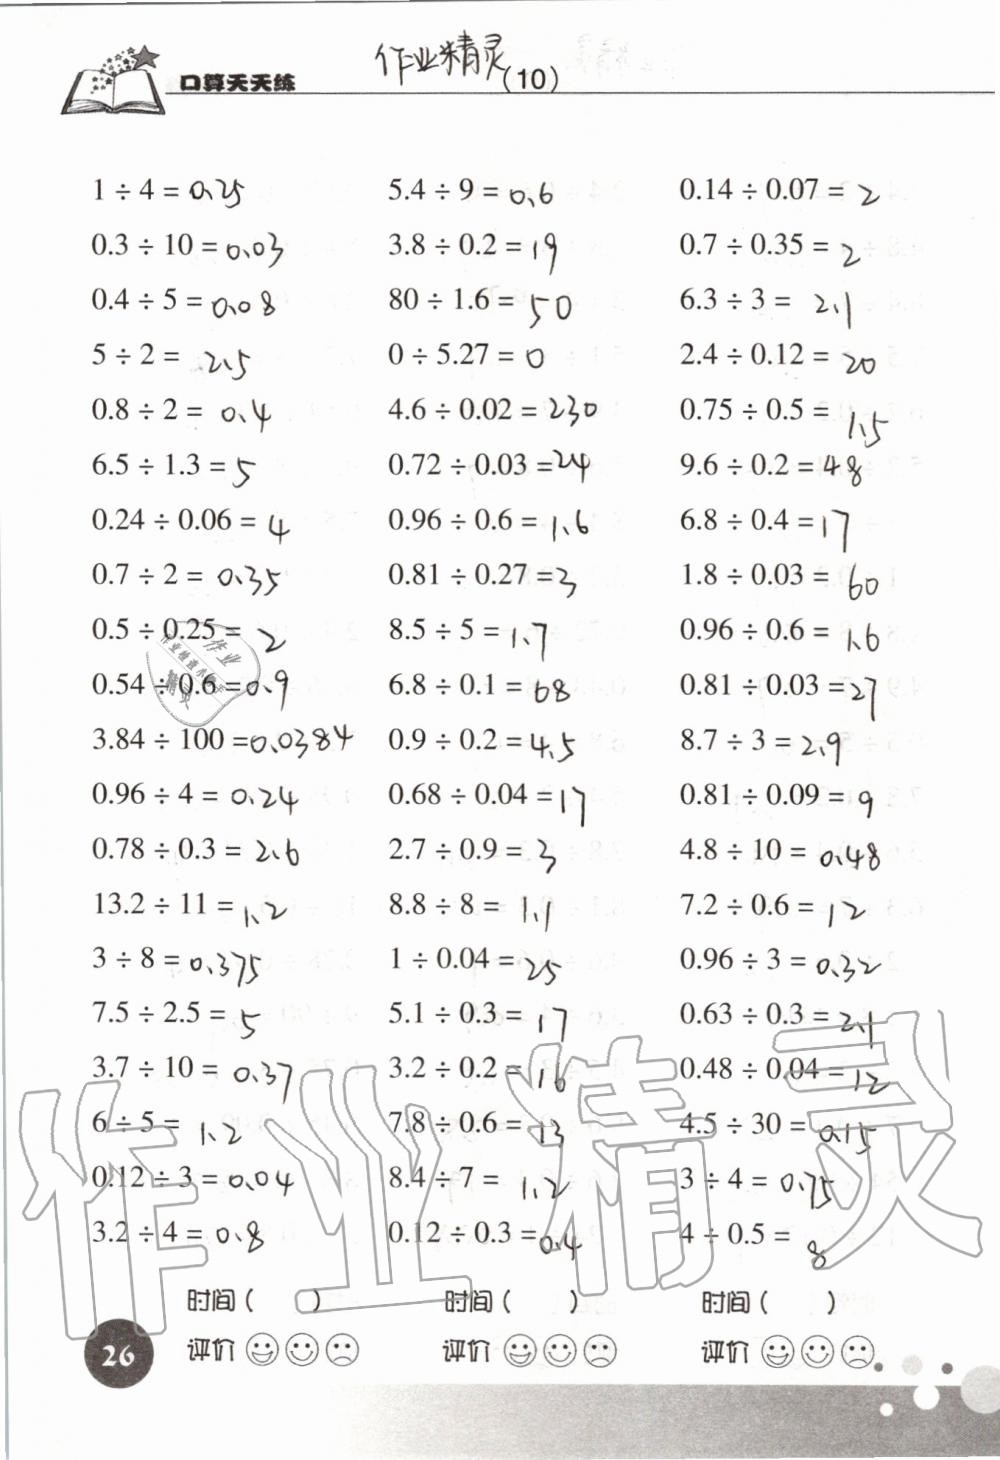 作业精灵
口算天天练
(10)
1 ÷ 4 = 0.25 5.4 ÷ 9 = 0.6 0.14 ÷ 0.07 = 2
0.3 ÷ 10 = 0.03 3.8 ÷ 0.2 = 19 0.7 ÷ 0.35 = 2
0.4 ÷ 5 = 0.08 80 ÷ 1.6 = 50 6.3 ÷ 3 = 2.1
5 ÷ 2 = 2.5 0 ÷ 5.27 = 0 2.4 ÷ 0.12 = 20
0.8 ÷ 2 = 0.4 4.6 ÷ 0.02 = 230 0.75 ÷ 0.5 = 1.5
6.5 ÷ 1.3 = 5 0.72 ÷ 0.03 = 24 9.6 ÷ 0.2 = 48
0.24 ÷ 0.06 = 4 0.96 ÷ 0.6 = 1.6 6.8 ÷ 0.4 = 17
0.7 ÷ 2 = 0.35 0.81 ÷ 0.27 = 3 1.8 ÷ 0.03 = 60
0.5 ÷ 0.25 = 2 8.5 ÷ 5 = 1.7 0.96 ÷ 0.6 = 1.6
0.54 ÷ 0.6 = 0.9 6.8 ÷ 0.1 = 68 0.81 ÷ 0.03 = 27
3.84 ÷ 100 = 0.0384 0.9 ÷ 0.2 = 4.5 8.7 ÷ 3 = 2.9
0.96 ÷ 4 = 0.24 0.68 ÷ 0.04 = 17 0.81 ÷ 0.09 = 9
0.78 ÷ 0.3 = 2.6 2.7 ÷ 0.9 = 3 4.8 ÷ 10 = 0.48
13.2 ÷ 11 = 1.2 8.8 ÷ 8 = 1.1 7.2 ÷ 0.6 = 12
3 ÷ 8 = 0.375 1 ÷ 0.04 = 25 0.96 ÷ 3 = 0.32
7.5 ÷ 2.5 = 5 5.1 ÷ 0.3 = 17 0.63 ÷ 0.3 = 2.1
3.7 ÷ 10 = 0.37 3.2 ÷ 0.2 = 16 0.48 ÷ 0.04 = 12
6 ÷ 5 = 1.2 7.8 ÷ 0.6 = 13 4.5 ÷ 30 = 0.15
0.12 ÷ 3 = 0.04 8.4 ÷ 7 = 1.2 3 ÷ 4 = 0.75
3.2 ÷ 4 = 0.8 0.12 ÷ 0.3 = 0.4 4 ÷ 0.5 = 8
作业精灵
时间 ( ) 时间 ( ) 时间 ( )
评价 评价 评价
26